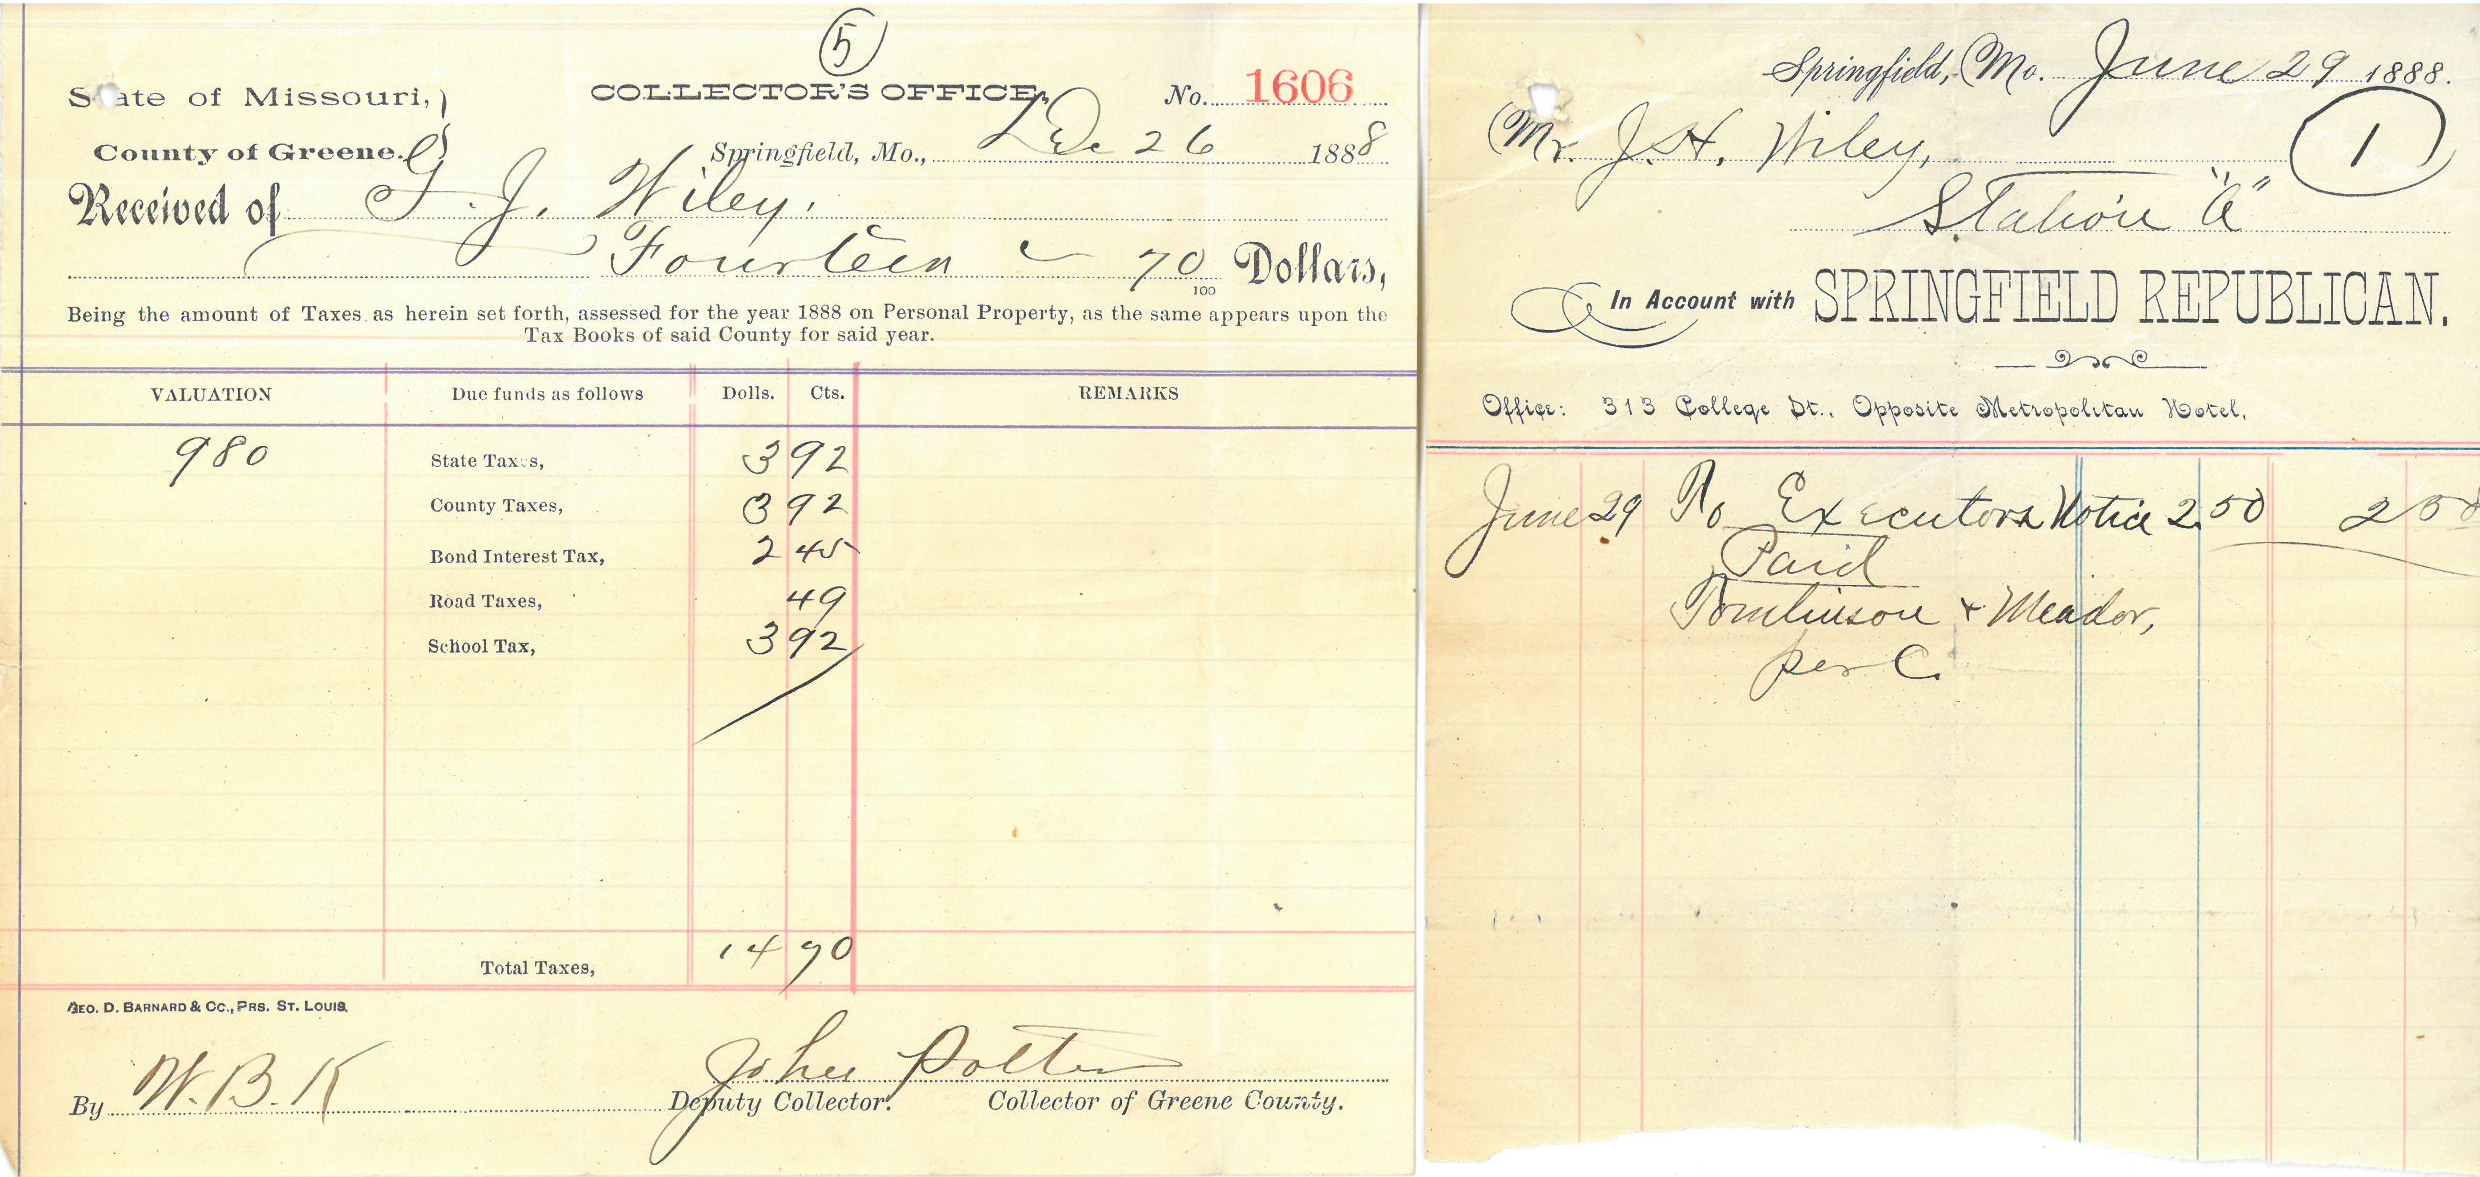 5
State of Missouri,
COLLECTOR'S OFFICE,
No. 1606
County of Greene.
Springfield, Mo., Dec 26 1888
Received of G. J. Wiley.
Fourteen 70/100 Dollars,
Being the amount of Taxes as herein set forth, assessed for the year 1888 on Personal Property, as the same appears upon the
Tax Books of said County for said year.
VALUATION Due funds as follows Dolls. Cts. REMARKS
980 State Taxes, 3 92
County Taxes, 3 92
Bond Interest Tax, 2 45
Road Taxes, 49
School Tax, 3 92
Total Taxes, 14 70
GEO. D. BARNARD & CO., PRS. ST. LOUIS.
By W. B. K Deputy Collector.
John Potter
Collector of Greene County.
Springfield, Mo. June 29 1888.
Mr. J. H. Wiley,
1
Station "A"
In Account with SPRINGFIELD REPUBLICAN.
Office: 313 College St., Opposite Metropolitan Hotel.
June 29 To Executors Notice 2.50 2 50
Paid
Tomlinson + Meador,
per C.